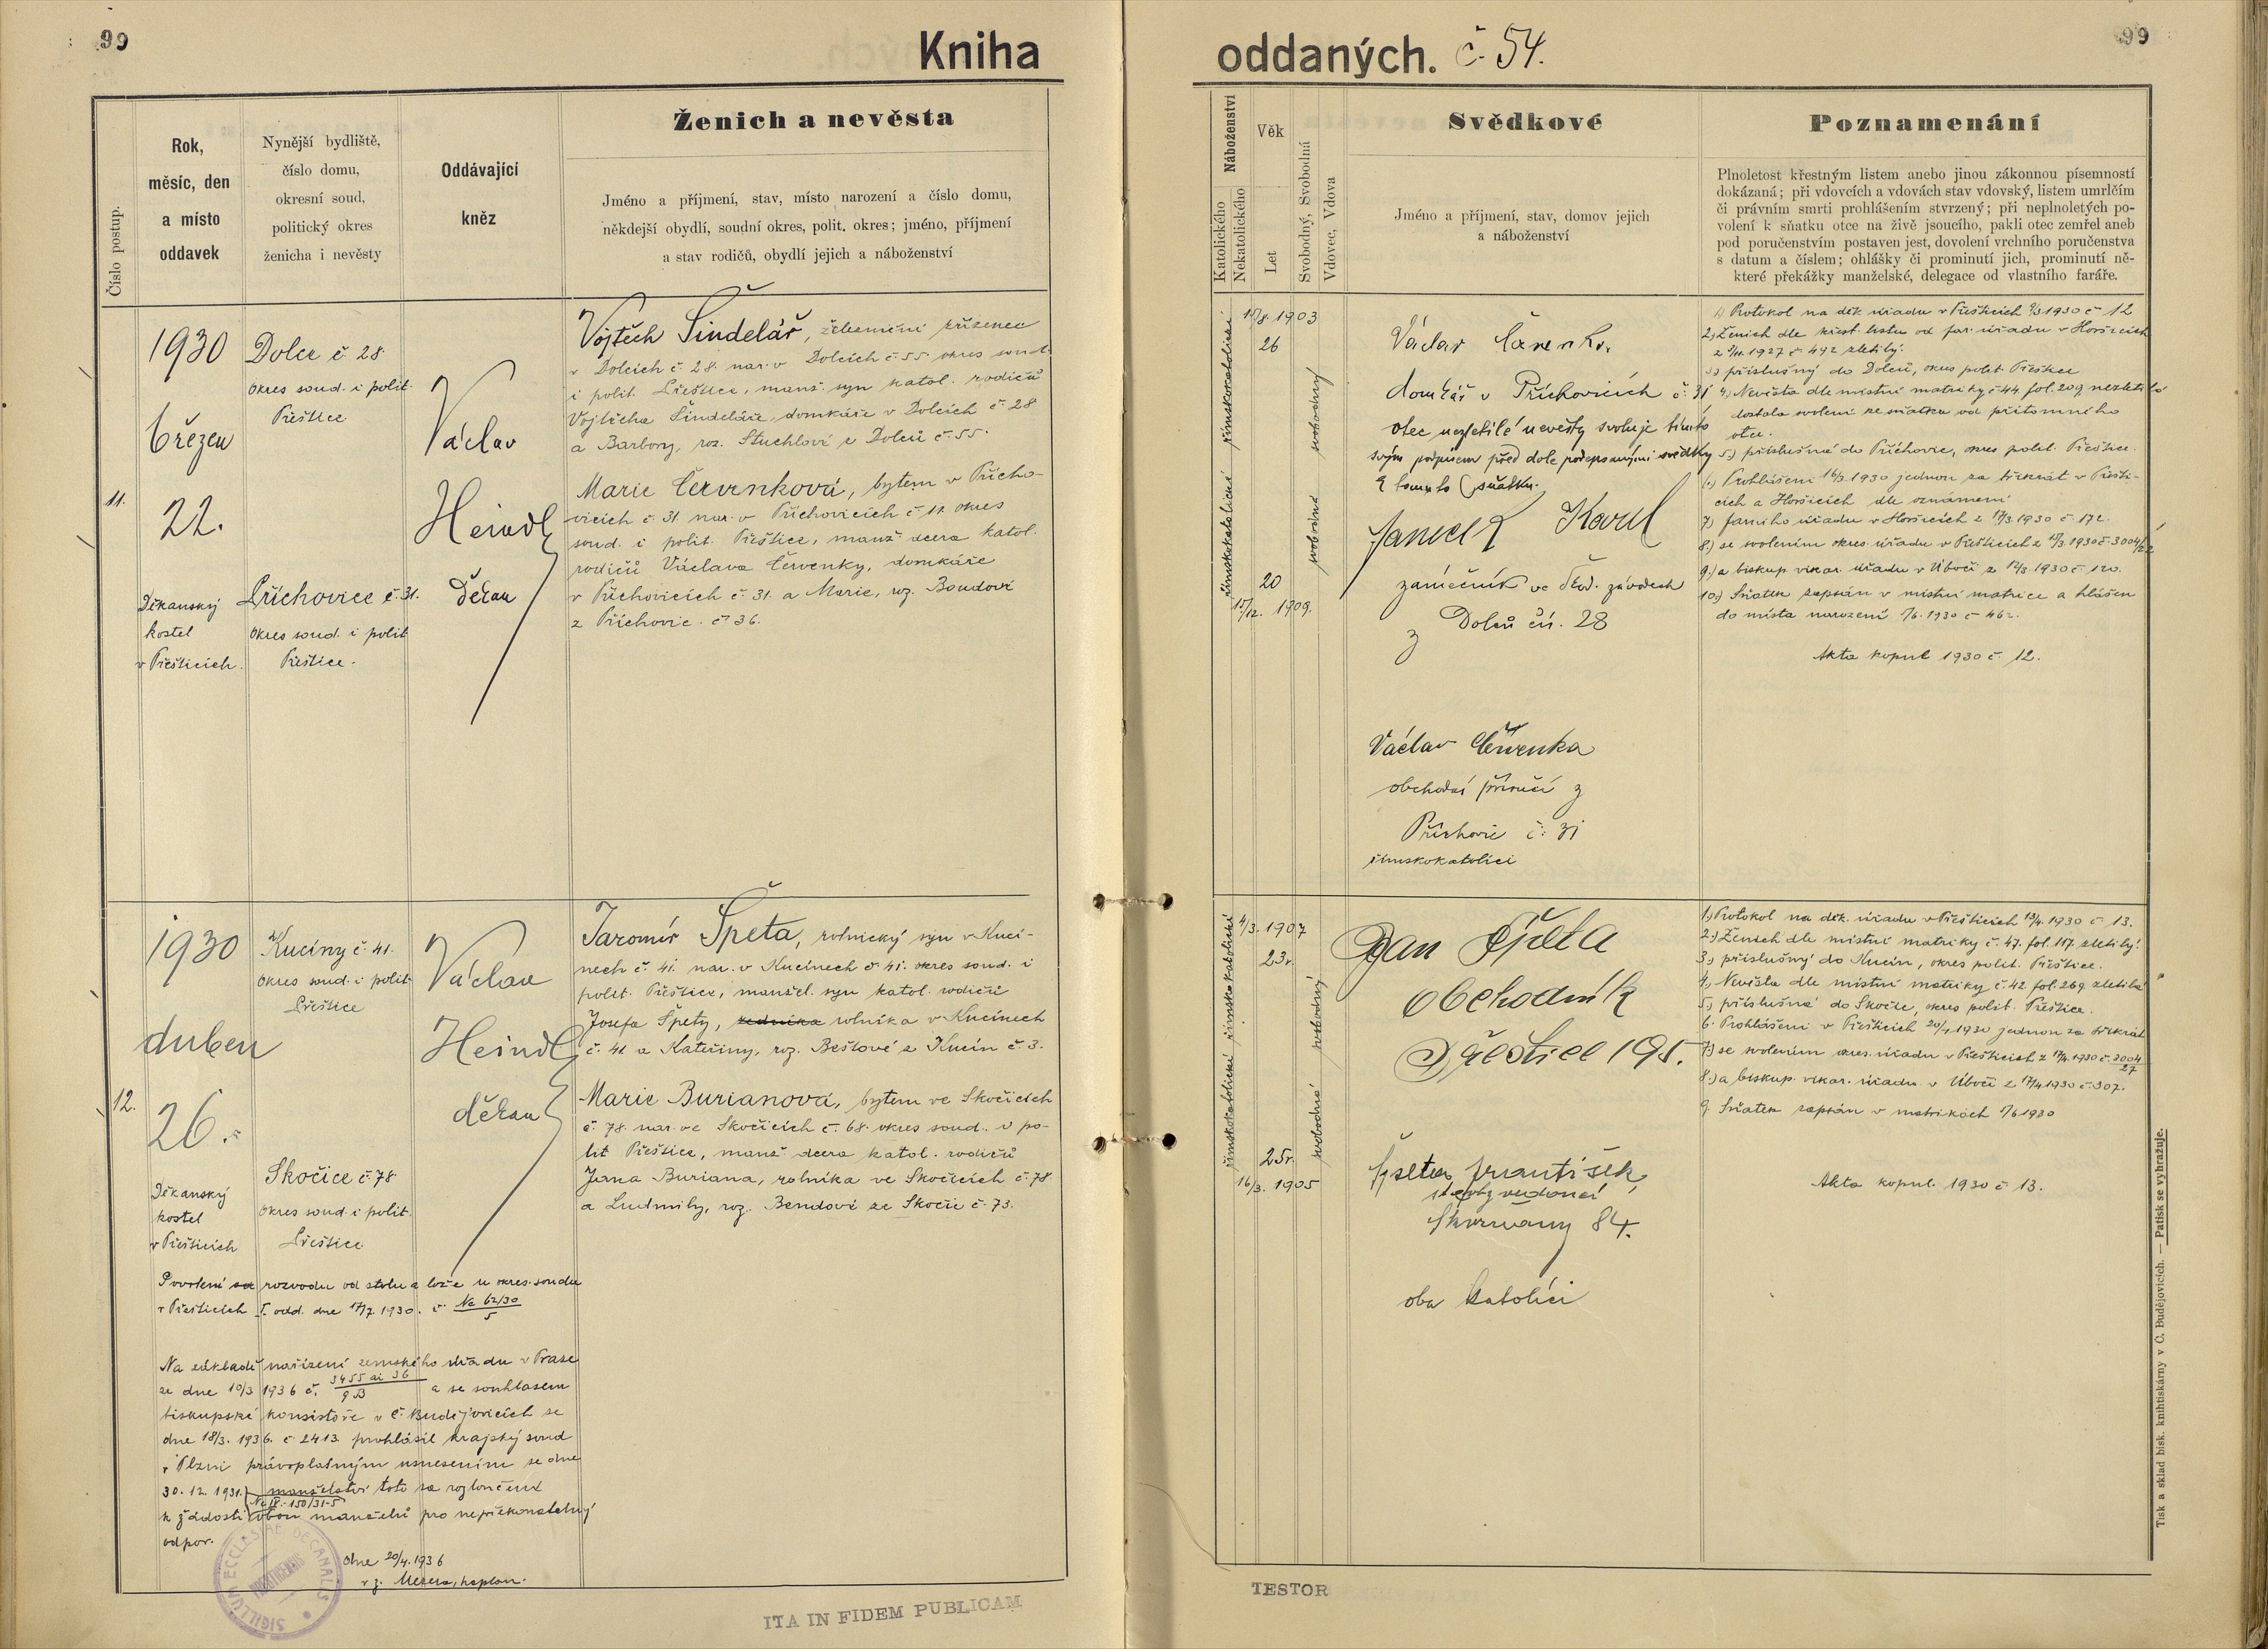 99
Kniha
Číslo postup.
Rok,
měsíc, den
a místo
oddavek
Nynější bydliště,
číslo domu,
okresní soud,
politický okres
ženicha i nevěsty
Oddávající
kněz
Ženich a nevěsta
Jméno a příjmení, stav, místo narození a číslo domu,
někdejší obydlí, soudní okres, polit. okres; jméno, příjmení
a stav rodičů, obydlí jejich a náboženství
11.
1930
březen
22.
Děkanský
kostel
v Přešticích.
Dolce č. 28.
okres soud. i polit.
Přeštice
Příchovice č. 31.
okres soud. i polit
Přeštice.
Václav
Heindl
děkan
Vojtěch Šindelář, železniční zřízenec
v Dolcích č. 28. nar. v Dolcích č. 55 okres soud.
i polit. Přeštice, manž. syn katol. rodičů
Vojtěcha Šindeláře, domkáře v Dolcích č. 28
a Barbory, roz. Stuchlové z Dolců č. 55.
Marie Červenková, bytem v Přícho-
vicích č. 31. nar. v Příchovicích č. 11. okres
soud. i polit. Přeštice, manž. dcera katol.
rodičů Václava Červenky, domkáře
v Příchovicích č. 31. a Marie, roz. Boudové
z Příchovic. č. 36.
12.
1930
duben
26.
Děkanský
kostel
v Přešticích
Kucíny č. 41.
okres soud. i polit.
Přeštice
Skočice č. 78
okres soud. i polit.
Přeštice
Václav
Heindl
děkan
Jaromír Špeta, rolnický syn v Kucí-
nech č. 41. nar. v Kucínech č. 41. okres soud. i
polit. Přeštice, manžel. syn katol. rodičů
Josefa Špety, rolníka v Kucínech
č. 41 a Kateřiny, roz. Bešlové z Kucín č. 3.
Marie Burianová, bytem ve Skočicích
č. 78. nar. ve Skočicích č. 68. okres soud. i po-
lit Přeštice, manž. dcera katol. rodičů
Jana Buriana, rolníka ve Skočicích č. 78
a Ludmily, roz. Bendové ze Skočic č. 73.
Povolení rozvodu od stolu a lože u okres. soudu
v Přešticích I. odd. dne 17/7 1930. č. Nc 62/30
5
Na základě nařízení zemského úřadu v Praze
ze dne 10/3 1936 č. 3455 ai 36 a se souhlasem
biskupské konsistoře v Č. Budějovicích ze
dne 18/3. 1936. č. 2413. prohlásil krajský soud
v Plzni právoplatným usnesením ze dne
30. 12. 1931. manželství toto za rozloučené
k žádosti obou manželů pro nepřekonatelný
odpor.
dne 20/4. 1936
kaplan.
SIGILLUM ECCLESIAE DECANALIS
ITA IN FIDEM PUBLICAM
99
oddaných. č. 54.
Náboženství
Katolického
Nekatolického
Věk
Let
Svobodný, Svobodná
Vdovec, Vdova
Svědkové
Jméno a příjmení, stav, domov jejich
a náboženství
Poznamenání
Plnoletost křestným listem anebo jinou zákonnou písemností
dokázaná; při vdovcích a vdovách stav vdovský, listem umrlčím
či právním smrti prohlášením stvrzený; při neplnoletých po-
volení k sňatku otce na živě jsoucího, pakli otec zemřel aneb
pod poručenstvím postaven jest, dovolení vrchního poručenstva
s datum a číslem; ohlášky či prominutí jich, prominutí ně-
které překážky manželské, delegace od vlastního faráře.
římskokatolické římskokatolické
1903
26
20
15/12. 1909.
svobodná svobodný
Václav
domkář v Příchovicích č. 31
otec nezletilé nevěsty svoluje tímto
svým podpisem před dole podepsanými svědky
k tomuto sňatku.
Janeček Karel
zámečník ve Škod. závodech
z Dolců čís. 28
Václav Červenka
obchodní příručí z
Příchovic č. 31
římskokatolíci
1.) Protokol na děk. úřadu v Přešticích 9/3 1930 č. 12
2.) Ženich dle křest. listu od far. úřadu v Horšicích
z 1927 č. 492 zletilý.
3.) příslušný do Dolců, okres polit. Přeštice
4.) Nevěsta dle místní matriky č. 44. fol. 209 nezletilá
dostala svolení ke sňatku od přítomného
otce.
5.) příslušná do Příchovic, okres polit. Přeštice.
6.) Prohlášení 16/3 1930 jednou za třikrát v Přešti-
cích a Horšicích dle oznámení
7.) farního úřadu v Horšicích z 17/3. 1930 č. 172.
8.) se svolením okres. úřadu v Přešticích z 1930 č. 3004/22
9.) a biskup. vikar. úřadu v Úboči z 1930 č. 120.
10.) Sňatek zapsán v místní matrice a hlášen
do místa narození 1/6. 1930 č. 462.
Akta kopul 1930 č. 12.
římskokatolické římskokatolické
4/3. 1907
23r.
25r.
16/3. 1905
svobodná svobodný
Jan Špeta
obchodník
Přeštice 195.
Špeta František,
Skvrňany 84.
oba katolíci
1.) Protokol na děk. úřadu v Přešticích 13/4. 1930 č. 13.
2.) Ženich dle místní matriky č. 47. fol. 117. zletilý.
3.) příslušný do Kucín, okres polit. Přeštice.
4.) Nevěsta dle místní matriky č. 42. fol. 269. zletilá
5.) příslušná do Skočic, okres polit. Přeštice.
6. Prohlášení v Přešticích 20/4 1930 jednou za třikrát
7.) se svolením okres. úřadu v Přešticích z 17/4. 1930 č. 3004
27
8.) a biskup. vikar. úřadu v Úboči z 17/4 1930 č. 307.
9. Sňatek zapsán v matrikách 1/6 1930
Akta kopul. 1930 č. 13.
TESTOR
Tisk a sklad bisk. knihtiskárny v Č. Budějovicích. — Patisk se vyhražuje.